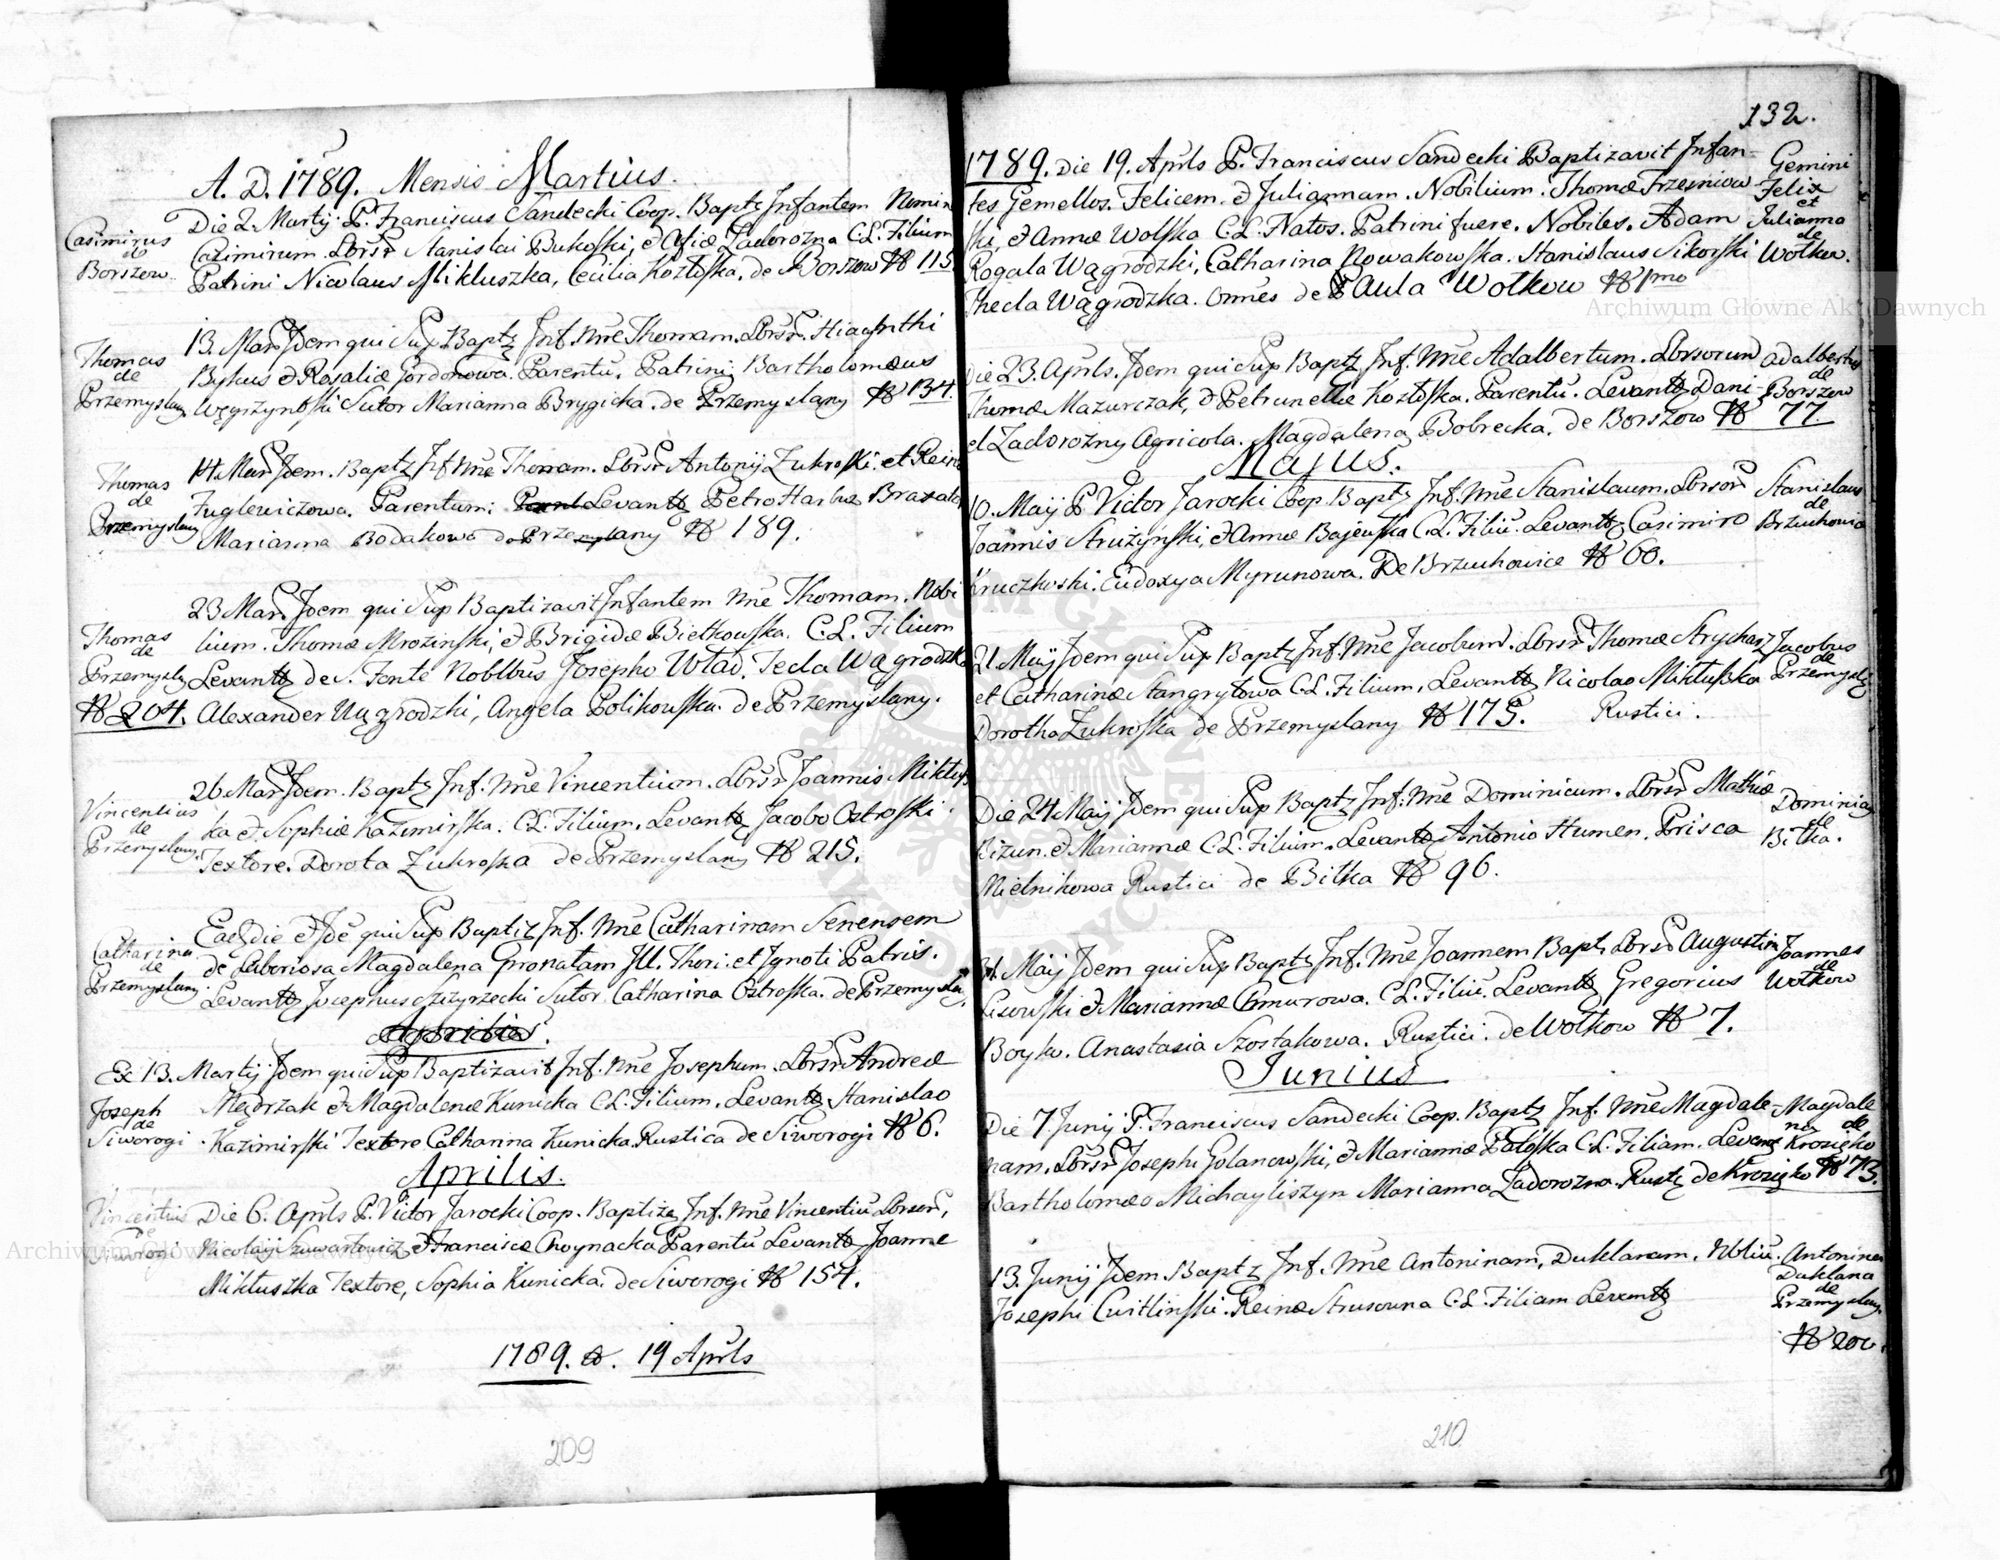 A. D. 1789. Mensis Martius.
Casimirus
de
Borszow.
Die 2 Martij P. Franciscus Sandecki Coop. Baptz Infantem Nomin
Casimirum. Lbrsr Stanislai Bukoski, et Zadorozna C. L. Filium
Patrini Nicolaus Mikluszka, Cecilia Kozłoska, de Borszow N 115
Thomas
de
Przemyslany
13. Mar. Idem qui Sup Baptz Inf. Nne Thomam. Lbrsr. Hiacynthi
Bykus et Rosaliæ Gordonowa. Parentū. Patrini Bartholomæus
Węgrzynoski Sutor Marianna Brygicka. de Przemyslany N 134.
Thomas
de
Przemyslany
14. Mar. Idem. Baptz Inf Nne Thomam. Lbrsr Antonij Zukroski. et Reinæ
Fuglewiczowa. Parentum. Levantz Petro Harhaz
Marianna Bodakowa de Przemyslany N 189.
Thomas
de
Przemysly
N 204.
23 Mar. Idem qui Sup Baptizavit Infantem Nne Thomam. Nobi
lium. Thomæ Mrozinski, et Brigidæ Bietkowska. C. L. Filium
Levantz de S. Fonte Noblbus Josepho Wład. Tecla Wągrodzka
Alexander Wągrodzki, Angela Polikowska. de Przemyslany.
Vincentius
de
Przemyslany.
26 Mar. Idem. Baptz Inf. Nne Vincentium. Lbrsr Joannis Miktus
ka et Sophiæ Kazimirska. C. L. Filium. Levantz Jacobo Ostroski.
Textore. Dorota Zukroska de Przemyslany N 215.
Catharina
de
Przemyslany.
Eadē die et Idē qui Sup Baptiz Inf. Nne Catharinam Senensem
de Laboriosa Magdalena Gronatam Ill. Thori. et Ignoti Patris.
Levantz Josephus Szczyrzecki Sutor. Catharina Ostroska. de Przemysla
Aprilis.
Joseph
de
Siworogi
Ex 13. Martij Idem qui Sup Baptizavit Inf. Nne Josephum. Lbrsr Andreæ
Mędrzak et Magdalenæ Kunicka C. L. Filium. Levantz Stanislao
Kazimirski Textore Catharina Kunicka. Rustica de Siworogi N 6.
Aprilis.
Vincentius
de
Siworogi
Die 6. Aprls P. Victor Jarocki Coop. Baptiz Inf. Nne Vincentiū Lbrsr,
Nicolaij et Franciscæ Choynacka Parentū Levantz Joanne
Miktuszka Textore, Sophia Kunicka. de Siworogi N 154.
1789. d. 19 Aprls
209
132.
1789. Die 19. Aprls P. Franciscus Sandecki Baptizavit Infan-
tes Gemellos. Felicem. et Juliannam. Nobilium. Thomæ Trzesniow
ski, et Annæ Wolska C. L. Natos. Patrini fuere. Nobiles. Adam
Rogala Wągrodzki, Catharina Nowakowska. Stanislaus Sikorski
Thecla Wągrodzka. omnes de Aula Wołkow N 1mo
Gemini
Felix
et
Julianna
de
Wołkow.
Die 23. Aprls. Idem qui Sup Baptz Inf. Nne Adalbertum. Lbrsorum
Thomæ Mazurczak, et Petrunellæ Kozłoska. Parentū. Levantz Dani-
el Zadorozny Agricola. Magdalena Bobrecka. de Borszow N 77.
Adalbertus
de
Borszow
Majus.
10. Maij P Victor Jarocki Coop. Baptz Inf. Nne Stanislaum. Lbrsor
Joannis Struzynski, et Annæ Bajewska C. L. Filiū. Levantz Casimiro
Kruczkoski. Eudoxya Myrunowa. De Brzuchowice N 60.
Stanislaus
de
Brzuchowice
21. Maij Idem qui Sup Baptz Inf. Nne Jacobum. Lbrsr Thomæ Strycharz
et Catharinæ Stangrytowa C. L. Filium. Levantz Nicolao Miktuska
Dorotha Zukroska de Przemyslany N 175. Rustici.
Jacobus
de
Przemysly
Die 24 Maij Idem qui Sup Baptz Inf. Nne Dominicum. Lbrsr Mathiæ
Bizun. et Mariannæ C. L. Filium. Levantz Antonio Humen. Prisca
Mielnikowa Rustici de Bitka N 96.
Dominicus
de
Bitka.
31. Maij Idem qui Sup Baptz Inf. Nne Joannem Bapt. Lbrsr Augustini
Lisowski et Mariannæ Chmurowa. C. L. Filiū. Levantz Gregorius
Boyko. Anastasia Szostakowa. Rustici. de Wołkow N 7.
Joannes
de
Wołkow
Junius
Die 7 Junij P. Franciscus Sandecki Coop. Baptz Inf. Nne Magdale-
nam. Lbrsr Josephi Golanowski, et Mariannæ Patoska C. L. Filiam. Levantz
Bartholomæo Michayliszyn Marianna Zadorozna. Rustz de Krosięko N 73.
Magdale
na de
Krosięko
13. Junij Idem. Baptz Inf. Nne Antoninam, Duklanam. Nbliū.
Josephi Cwitlinski. Reinæ Strusowna C. L. Filiam Levantz
Antonina
Duklana
de
Przemyslany.
210
Archiwum Główne Akt Dawnych